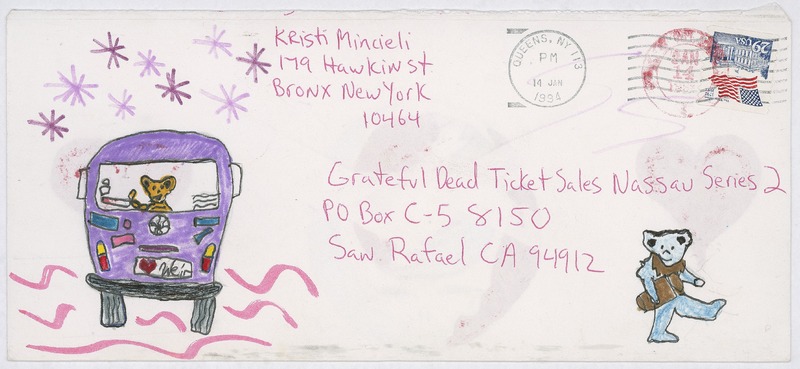 Kristi Mincieli
179 Hawkin St
Bronx New York
10464
QUEENS, NY 113
PM
14 JAN
1994
29 USA
Grateful Dead Ticket Sales Nassau Series 2
PO Box C-S 8150
San Rafael CA 94912
Weir